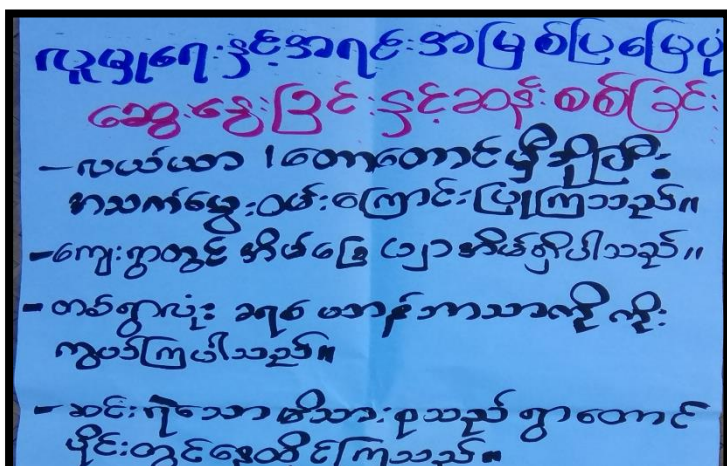 လူမှုရေးနှင့်အရင်းအမြစ်ပြမြေပုံ
ဆွေးနွေးခြင်းနှင့်ဆန်းစစ်ခြင်း
-လယ်ယာ ၊တောတောင်မှီခိုပြီး
အသက်မွေးဝမ်းကြောင်းပြုကြသည်။
-ကျေးရွာတွင် အိမ်ခြေ ၄၂ အိမ်ရှိပါသည်။
-တစ်ရွာလုံး ခရစ်ယာန်ဘာသာကို ကိုး
ကွယ်ကြပါသည်။
-ဆင်းရဲသော မိသားစုသည် ရွာတောင်
ပိုင်းတွင်နေထိုင်ကြသည်။